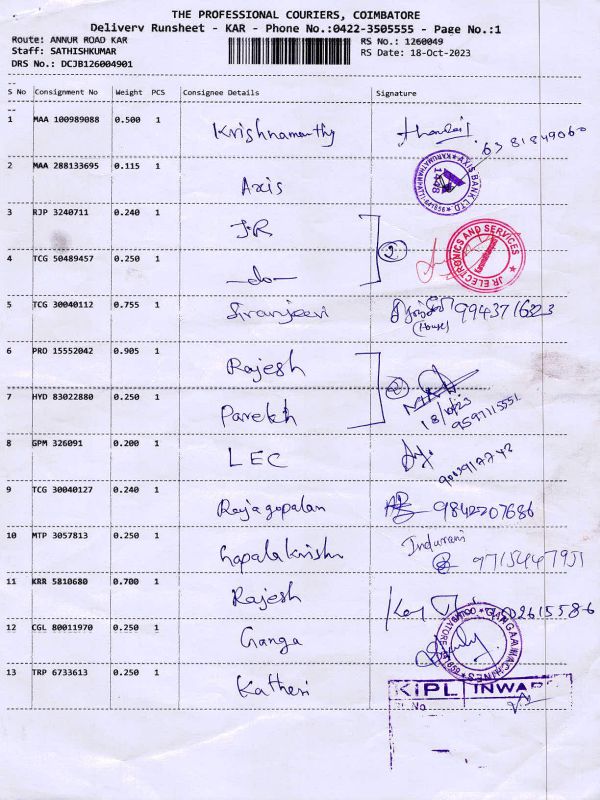 THE PROFESSIONAL COURIERS, COIMBATORE
Delivery Runsheet - KAR - Phone No.:0422-3505555 - Page No.:1
Route: ANNUR ROAD KAR
RS No.: 1260049
Staff: SATHISHKUMAR
RS Date: 18-Oct-2023
DRS No.: DCJB126004901
S No Consignment No Weight PCS Consignee Details Signature
1 MAA 100989088 0.500 1 Krishnamorthy
6381849060
2 MAA 288133695 0.115 1 Axis
AXIS BANK LTD
1448
3 RJP 3240711 0.240 1 J.R
2
JR ELECTRONICS AND SERVICES
4 TCG 50489457 0.250 1 -do-
5 TCG 30040112 0.755 1 Siranjeevi
(House)
6 PRO 15552042 0.905 1 Rajesh
2
7 HYD 83022880 0.250 1 Parekh
18/10/23
9597115551
8 GPM 326091 0.200 1 LEC
9 TCG 30040127 0.240 1 Rajagopalan 9842207686
10 MTP 3057813 0.250 1 Gopalakrishn
Indurani
9715447951
11 KRR 5810680 0.700 1 Rajesh
12 CGL 80011970 0.250 1 Ganga
13 TRP 6733613 0.250 1 Katheri
KIPL INWAR
Sl. No